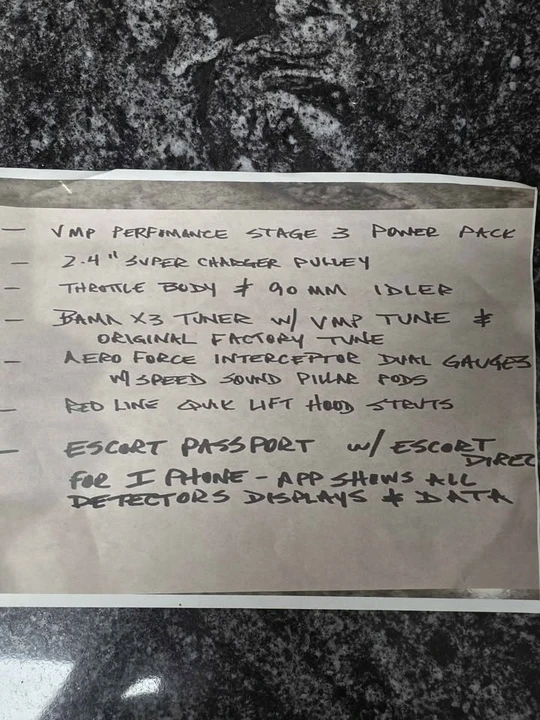 - VMP PERFMANCE STAGE 3 POWER PACK
- 2.4" SUPER CHARGER PULLEY
- THROTTLE BODY & 90 MM IDLER
- BAMA X3 TUNER W/ VMP TUNE &
ORIGINAL FACTORY TUNE
- AERO FORCE INTERCEPTOR DUAL GAUGES
W/ SPEED SOUND PILLAR PODS
- RED LINE QUIK LIFT HOOD STRUTS
- ESCORT PASSPORT W/ ESCORT
DIREC
FOR I PHONE - APP SHOWS ALL
DETECTORS DISPLAYS & DATA